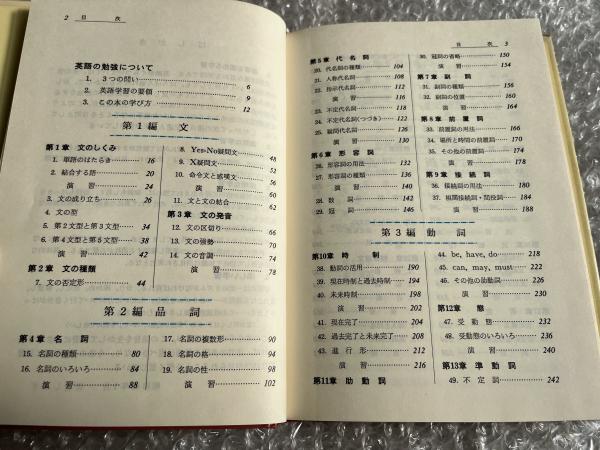 2 目次
英語の勉強について
1. 3つの問い 6
2. 英語学習の要領 9
3. この本の学び方 12
第1編 文
第1章 文のしくみ
1. 単語のはたらき 16
2. 結合する語 20
演習 24
3. 文の成り立ち 26
4. 文の型
5. 第2文型と第3文型 34
6. 第4文型と第5文型 38
演習 42
第2章 文の種類
7. 文の否定形 44
8. Yes-No疑問文 48
9. X疑問文 52
10. 命令文と感嘆文 56
演習 60
11. 文と文の結合 62
第3章 文の発音
12. 文の区切り 66
13. 文の強勢 70
14. 文の音調 74
演習 78
第2編 品詞
第4章 名詞
15. 名詞の種類 80
16. 名詞のいろいろ 84
演習 88
17. 名詞の複数形 90
18. 名詞の格 94
19. 名詞の性 98
演習 102
目次 3
第5章 代名詞
20. 代名詞の種類 104
21. 人称代名詞 108
22. 指示代名詞 112
演習 116
23. 不定代名詞 118
24. 不定代名詞(つづき) 122
25. 疑問代名詞 126
演習 130
第6章 形容詞
26. 形容詞の用法 132
27. 形容詞の種類 136
演習 140
28. 数詞 142
29. 冠詞 146
30. 冠詞の省略 150
演習 154
第7章 副詞
31. 副詞の種類 156
32. 副詞の位置 160
演習 164
第8章 前置詞
33. 前置詞の用法 166
34. 場所と時間の前置詞 170
35. その他の前置詞 174
演習 178
第9章 接続詞
36. 接続詞の用法 180
37. 相関接続詞・間投詞 184
演習 188
第3編 動詞
第10章 時制
38. 動詞の活用 190
39. 現在時制と過去時制 194
40. 未来時制 198
演習 202
41. 現在完了 204
42. 過去完了と未来完了 208
43. 進行形 212
演習 216
第11章 助動詞
44. be, have, do 218
45. can, may, must 222
46. その他の助動詞 226
演習 230
第12章 態
47. 受動態 232
48. 受動態のいろいろ 236
演習 240
第13章 準動詞
49. 不定詞 242